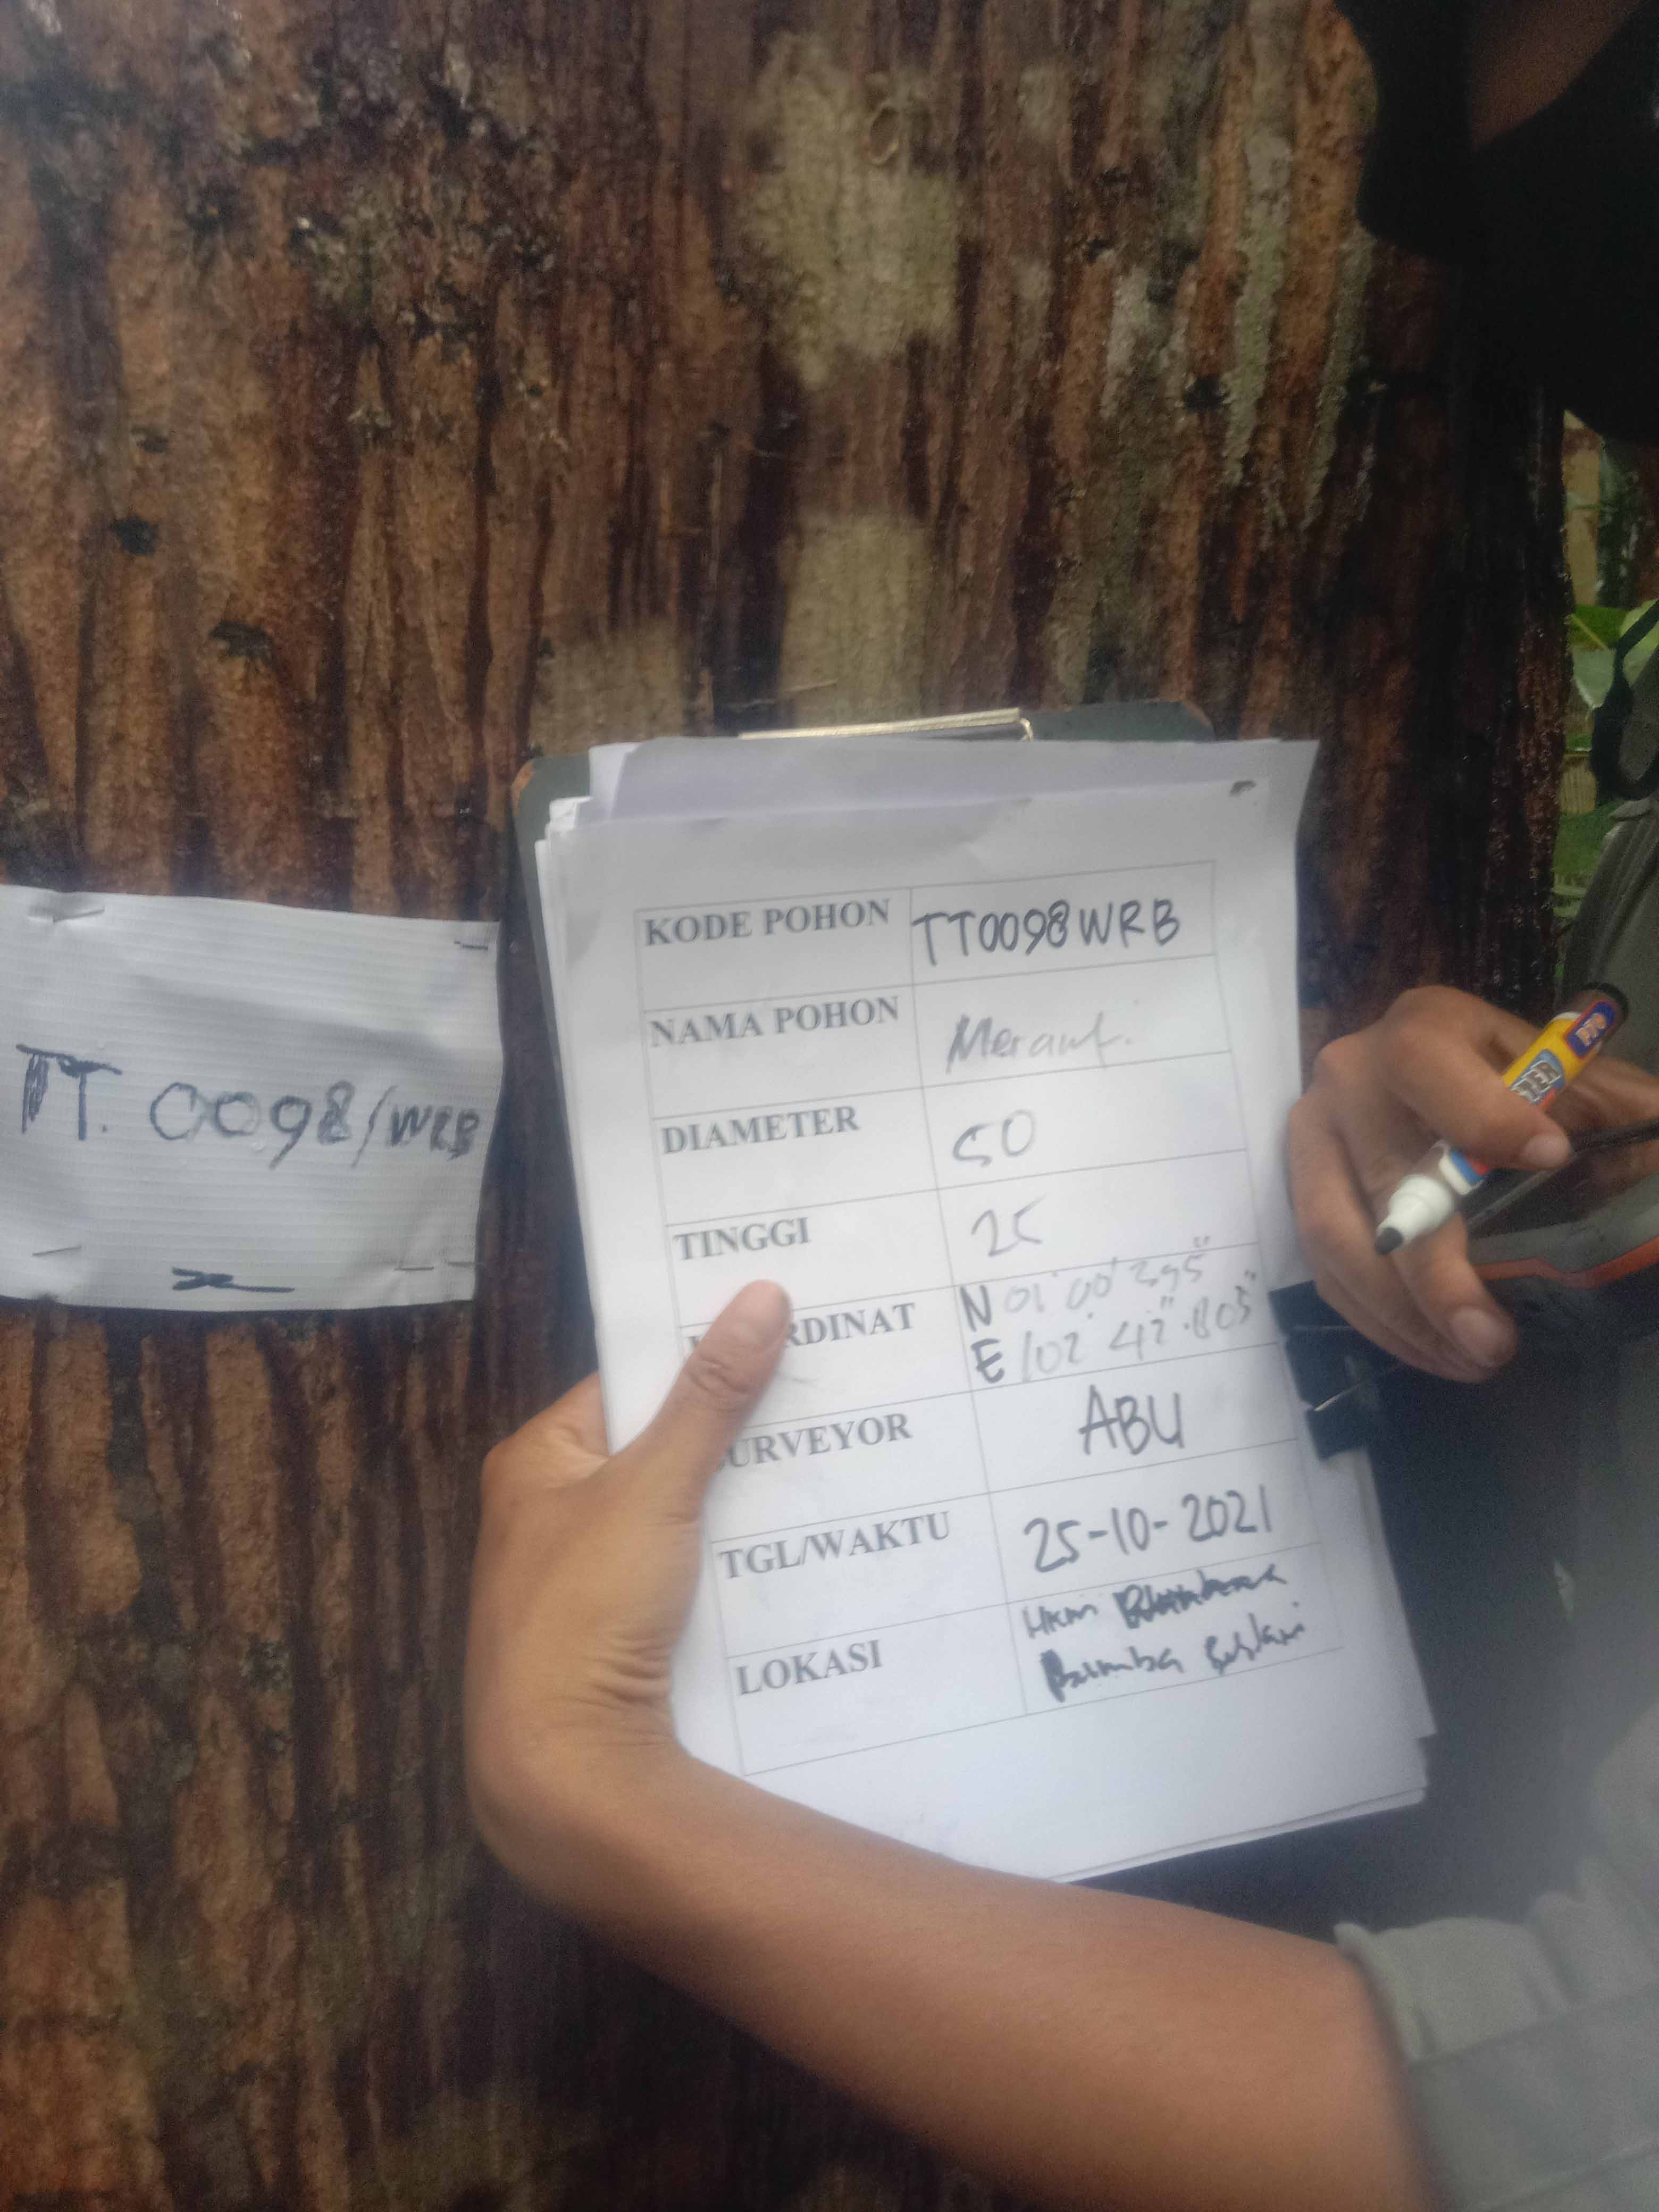 TT. 0098/WRB
KODE POHON TT0098WRB
NAMA POHON Meranti
DIAMETER 50
TINGGI 25
RDINAT N 01° 00' 395"
E 102° 42'' .805"
URVEYOR ABU
TGL/WAKTU 25-10-2021
LOKASI HKM
Rimba